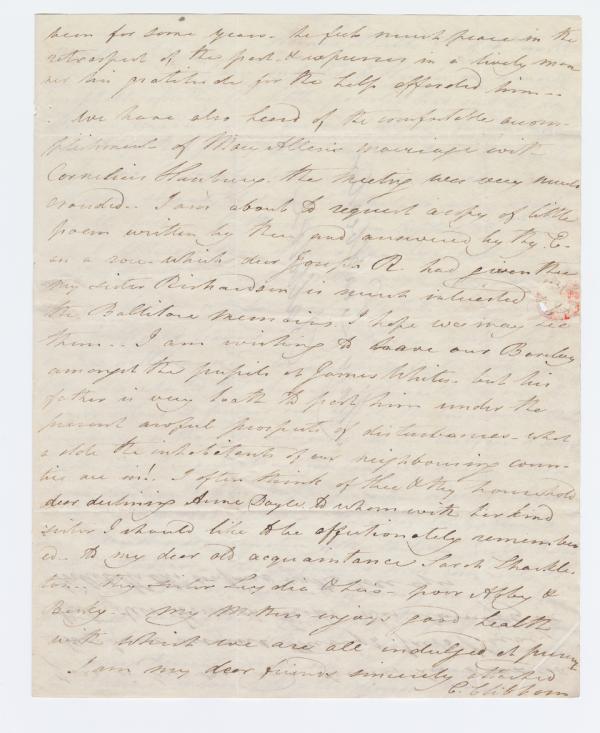 been for some years - he feels much peace in the
retrospect of the past & expresses in a lively man
ner his gratitude for the help afforded him --
We have also heard of the comfortable accom-
plishment of Mary Allen's marriage with
Cornelius Hanbury. the meeting was very much
crouded. I am about to request a copy of little
poem written by thee and answered by thy E-
on a rose which dear Joseph R. had given thee
my sister Richardson is much interested
the Ballitore memoirs. I hope we may see
them.. I am wishing to leave our Barclay
amongst the pupils at James Whites. but his
father is very loath to part him under the
present awful prospects of disturbances - what
a state the inhabitants of our neighbouring coun-
ties are in!. I often think of thee & thy household
dear declining Anne Doyle. to whom with her kind
sister I should like to be affectionately remember
ed. to my dear old acquaintance Sarah Shackle-
ton. thy sister Lydia & - poor Abby &
My Mother enjoys good health
with which we are all indulged at present
I am my dear friend sincerely attached
C. Clibborn